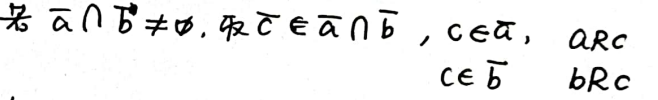 若 ā ∩ b̄ ≠ ∅. 取 c̄ ∈ ā ∩ b̄, c ∈ ā, aRc
c ∈ b̄ bRc